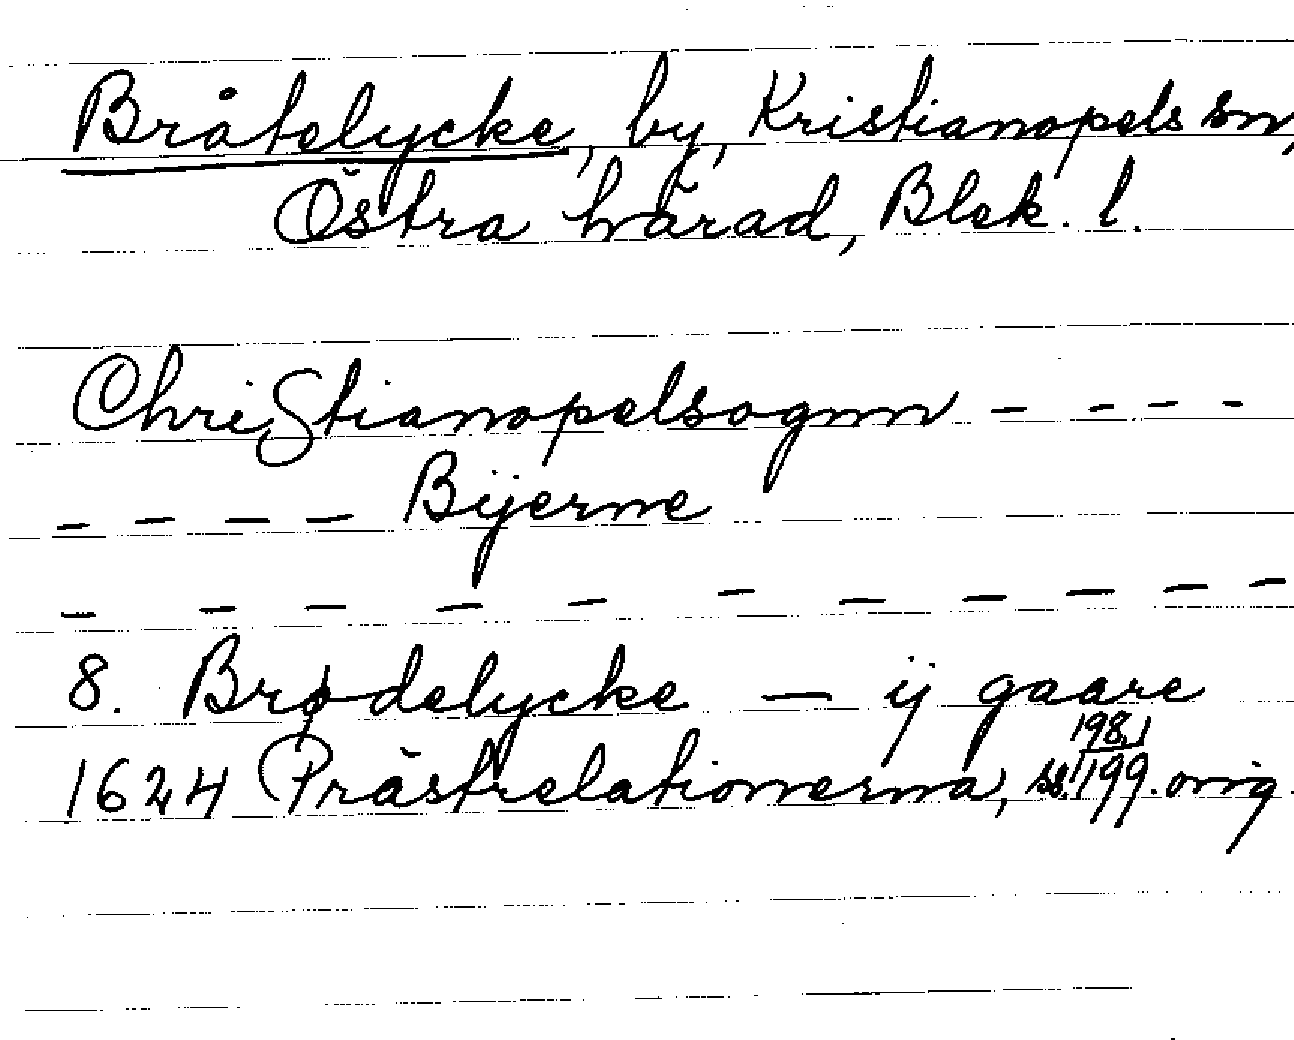 Bråtelycke, by, Kristianopels sn,
Östra härad, Blek. l.
ChriStianopelsognn - - - -
- - - - Bÿerne
- - - - - - - - - - -
8. Brødelycke — ij gaare
198,
1624 Prästrelationerna, ss. 199. orig.